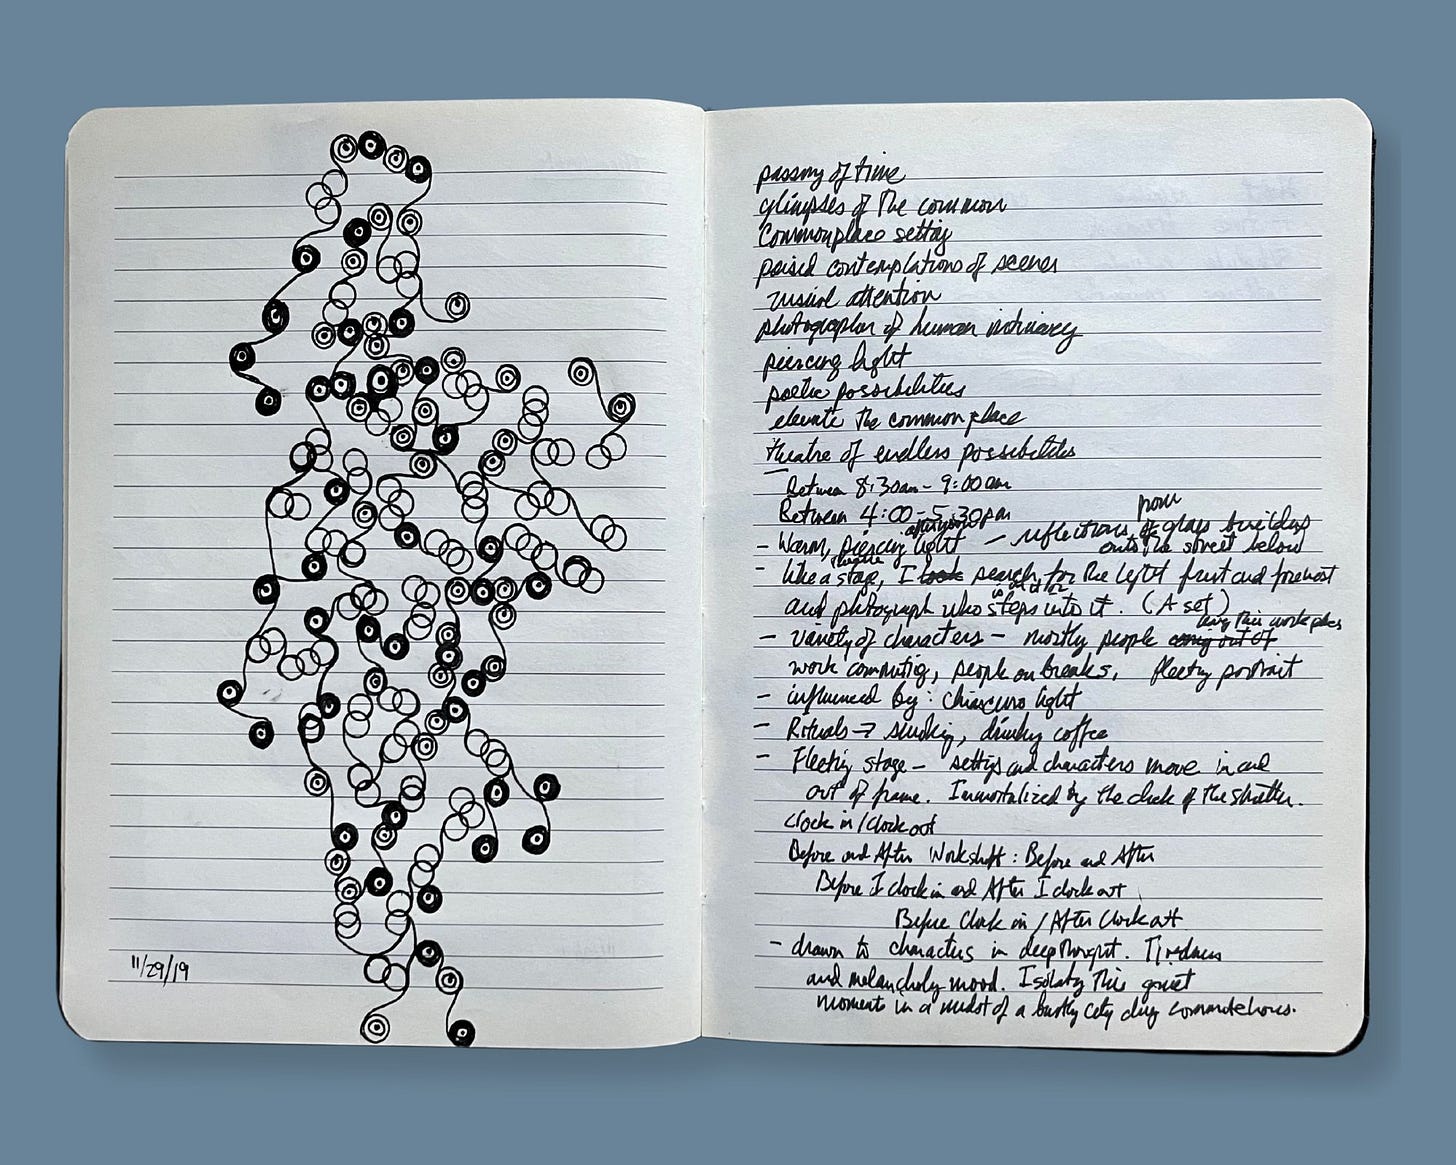 11/29/19
passing of time
glimpses of the common
Commonplace setting
poised contemplations of scenes
visual attention
photographer of human intimacy
piercing light
poetic possibilities
elevate the common place
theatre of endless possibilities
Between 8:30am - 9:00am
Between 4:00 - 5:30pm
- Warm, piercing afternoon light - reflections from glass buildings
onto the street below
- like a stage, I look search for the light first and foremost
and photograph who steps into it. (A set)
- variety of characters - mostly people coming out of leaving their work places
work commuting, people on breaks, fleeting portrait
- influenced by: Chiascuro light
- Rituals → smoking, drinking coffee
- Fleeting stage - settings and characters move in and
out of frame. Immortalized by the click of the shutter.
Clock in / Clock out
Before and After Workshift: Before and After
Before I clock in and After I clock out
Before Clock in / After Clock out
- drawn to characters in deep thought. Tiredness
and melancholy mood. Isolating this quiet
moments in a midst of a busy city during commute hours.